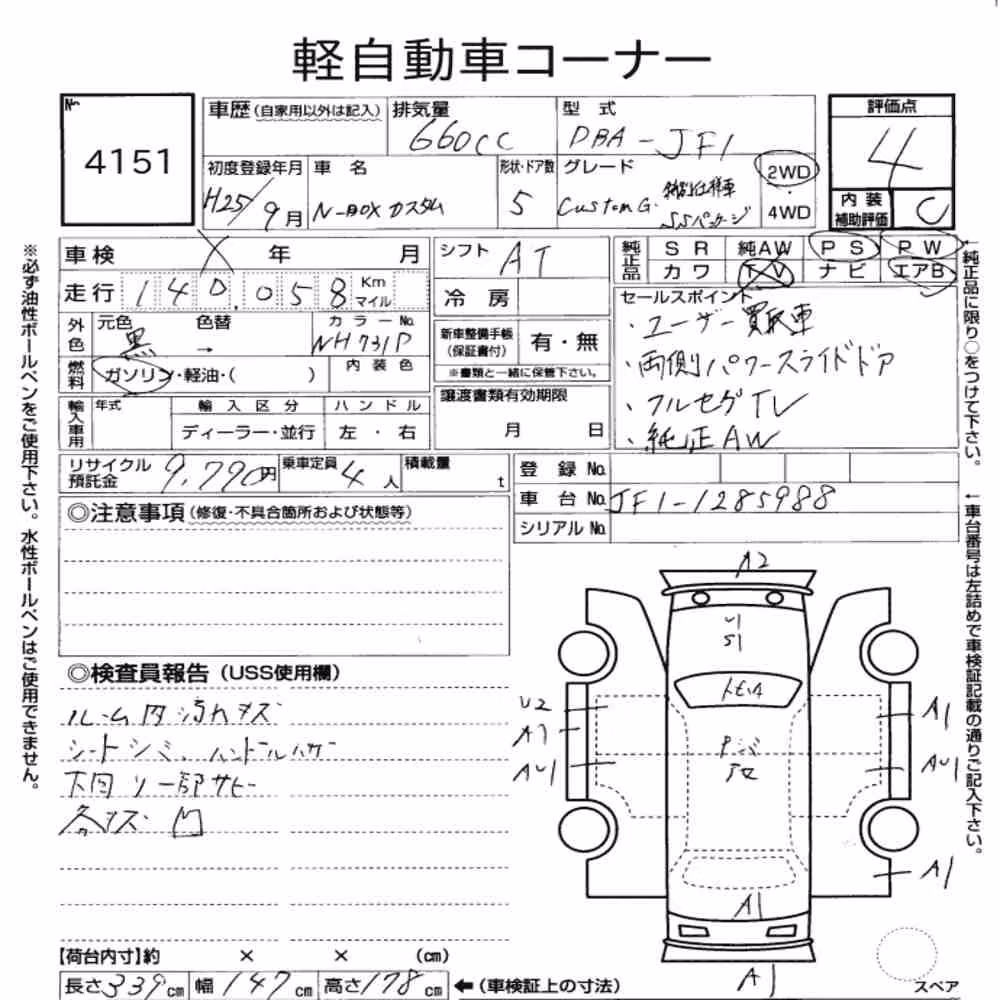 軽自動車コーナー
№
4151
車歴(自家用以外は記入)
排気量
660cc
型 式
DBA-JF1
評価点
4
内 装
補助評価
C
初度登録年月
H25/9月
車 名
N-BOX カスタム
形状・ドア数
5
グレード
Custom G.
特別仕様車
SSパッケージ
2WD
・
4WD
車検
年
月
走行
140,058
Km
マイル
シフト
AT
純正品
SR
純AW
PS
PW
カワ
TV
ナビ
エアB
冷 房
セールスポイント
・ユーザー買取車
・両側パワースライドドア
・フルセグTV
・純正AW
外色
元色
黒
色替
→
カラーNo.
NH731P
内 装 色
燃料
ガソリン・軽油・( )
新車整備手帳
(保証書付)
有・無
※書類と一緒に保管下さい。
輸入車用
年式
輸 入 区 分
ディーラー・並行
ハ ン ド ル
左 ・ 右
譲渡書類有効期限
月 日
リサイクル
預託金
9,790円
乗車定員
4人
積載量
t
登 録 No.
車 台 No.
JF1-1285988
シリアル No.
◎注意事項(修復・不具合箇所および状態等)
◎検査員報告(USS使用欄)
ルーム内汚れキズ
シートシミ、ハンドルハゲ
下回り一部サビ
各キズ凹
A2
U1
S1
U2
A1
AU1
A1
AU1
A1
A1
A1
【荷台内寸】約 × × (cm)
長さ339cm
幅147cm
高さ178cm
←(車検証上の寸法)
スペア
※必ず油性ボールペンをご使用下さい。水性ボールペンはご使用できません。
↑純正品に限り○をつけて下さい。
↑車台番号は左詰めで車検証記載の通りご記入下さい。